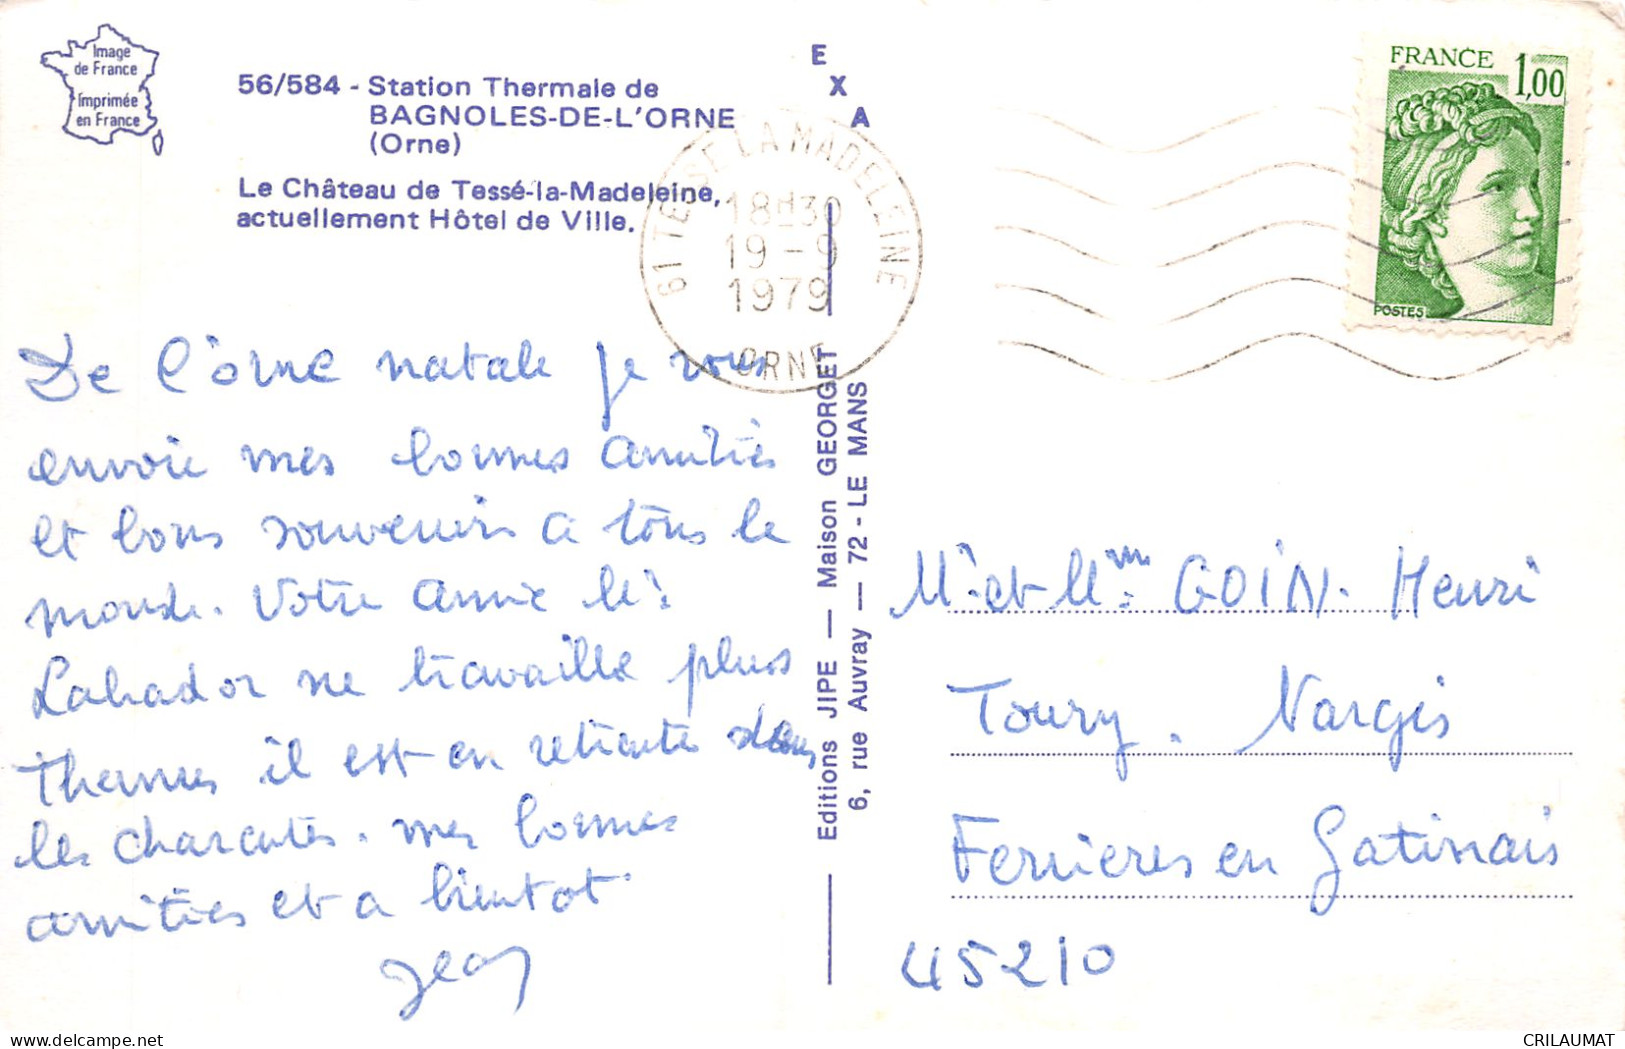 Image
de France
Imprimée
en France
56/584 - Station Thermale de
BAGNOLES-DE-L'ORNE
(Orne)
Le Château de Tessé-la-Madeleine,
actuellement Hôtel de Ville.
E
X
A
61 TESSE LA MADELEINE
18H30
19 - 9
1979
ORNE
FRANCE 1,00
POSTES
De l'orne natale je vous
envoie mes bonnes amitiés
et bons souvenirs a tous le
monde. Votre
Labador ne travaille plus
il est en retraite dans
les charcutes. mes bonnes
amitiées et a bientot
Jean
Editions JIPE — Maison GEORGET
6, rue Auvray — 72 - LE MANS
Mr et Mme GOIN. Henri
Toury. Nargis
Ferrieres en Gatinais
45210
CRILAUMAT